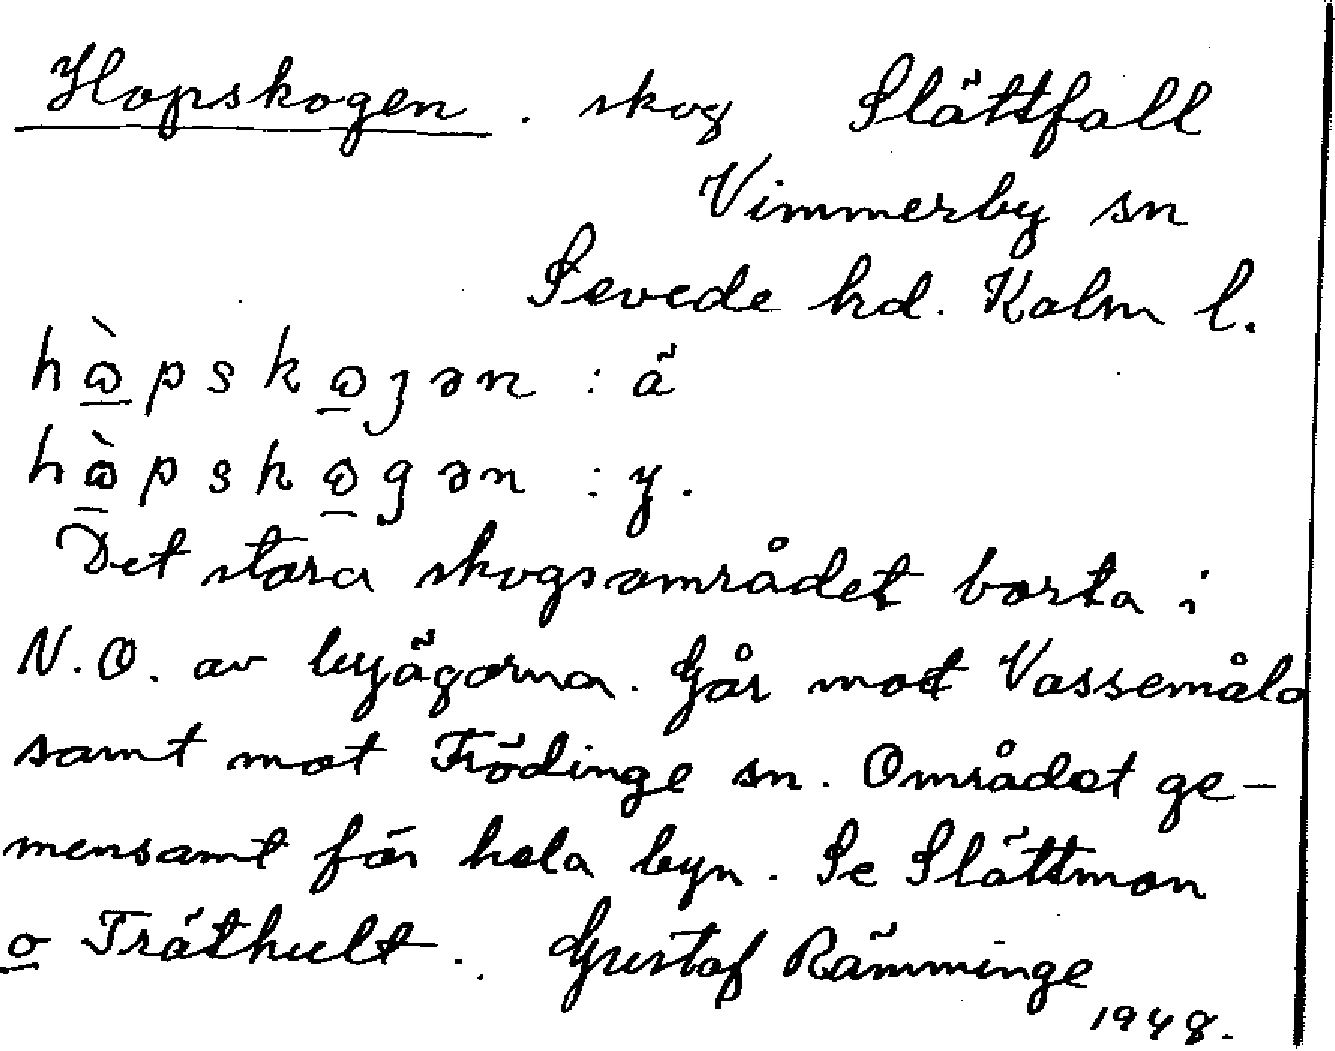 Hopskogen. skog Slättfall
Vimmerby sn
Sevede hd. Kalm l.
hὼpskꞷȝən : ä
hὼpskꞷgən : y.
Det stora skogsområdet borta i
N.O. av byägorna. Går mot Vassemåla
samt mot Frödinge sn. Området ge-
mensamt för hela byn. Se Slättmon
o Träthult. Gustaf Rämminge
1948.